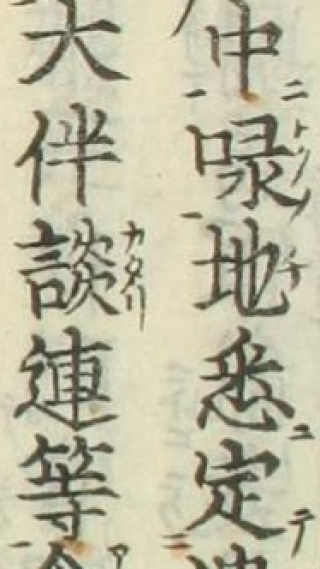 中喙地悉定
大伴談連等